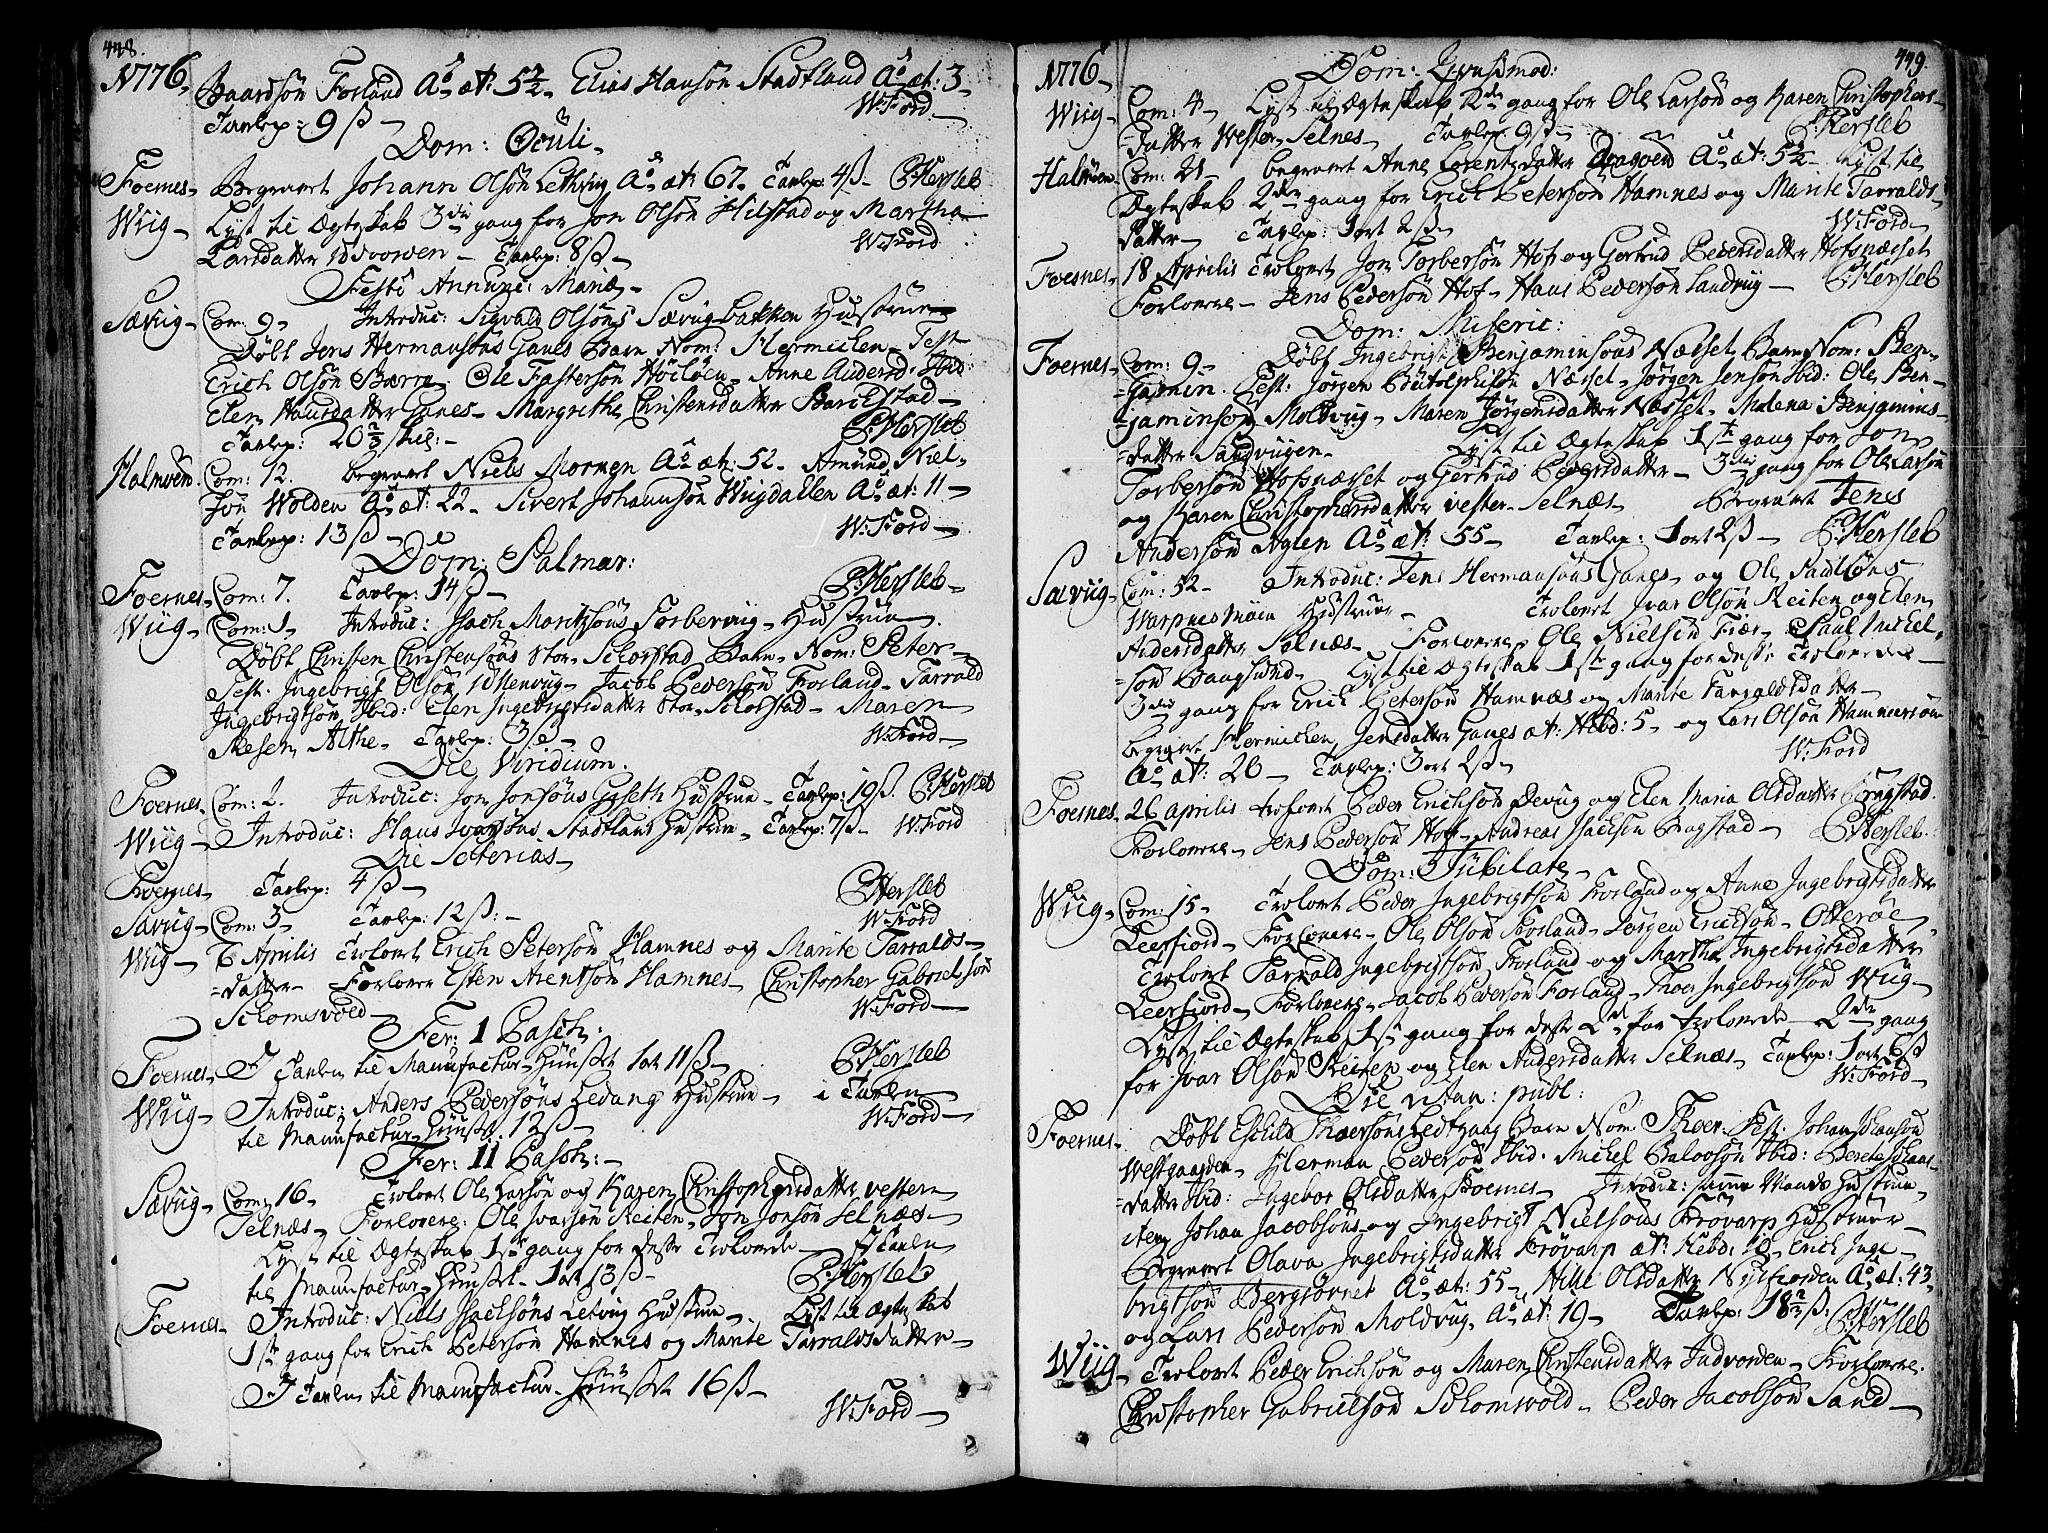 448.
1776. Baardsøn Forland Ao æt: 5 1/2 Elias Hansøn Stadtland Ao æt: 3-
Tavlep: 9 ß - W:Ford
Dom: Oculi-
Foernes- Begravet Johann Olsøn Lethvug Ao æt: 67. Tavlep: 4 ß - C:Hersleb
Wiig- Lyst til Ægteskab 3die gang for Jon Olsøn Hilstad og Martha
Larsdatter - Tavlep: 8 ß - W:Ford
Festi Annunc: Mariæ-
Sævug- Com: 9- Introduc: Sigvald Olsøns Sævugbakken Hustrue
Døbt Jens Hermansøns Ganes Barn Nom: Hermichen- Test
Erich Olsøn Ole Fastersøn Høiløen- Anne Andersd: Ibid:
Elen Hansdatter Ganes- Margrethe Christensdatter
Tavlep: 20 2/3 skil:- C:Hersleb
Halmøen. Com: 12. begravet Niels Mornen Ao æt: 52- Amund Niel-
søn Wolden Ao æt: 22- Sivert Johannsøn Wiigdallen Ao æt: 11-
Tavlep: 13 ß - W:Ford
Dom: Palmar:
Foernes- Com: 7. Tavlep: 14 ß - C:Hersleb-
Wiig- Com: 1- Introduc: Isach Moritzøns Torbervug- Hustrue.
Døbt Christen Christensøns Stor- Schorstad Barn- Nom: Peter-
Test. Ingebrigt Olsøn Jacob Pedersøn Forland- Tarrald
Ingebrigtsøn Ibid: Elen Ingebrigtsdatter Stor- Schorstad- Maren
Althe- Tavlep: 3 ß - W:Ford-
Die Viridium.
Foernes- Com: 2. Introduc: Jon Jonsøns Gyseth Hustrue- Tavlep: 19 ß. C:Hersleb
Wiig- Introduc: Hans Ivarsøns Stadtland Hustrue- Tavlep: 7 ß - W:Ford
Die Soterias-
Foernes- Tavlep: 4 ß - C:Hersleb
Sævug- Com: 3- Tavlep: 12 ß:- W:Ford
Wiig- 6 Aprilis Trolovet Erich Petersøn Hamnes og Marite Tarralds-
=datter- Forlover Esten Arentsøn Hamnes- Christopher Gabrielsøn
Schomsvold- W:Ford-
Fer: 1 Pasch:
Foernes- I Tavlen til Manufactur-Huuset 1 ort 11 ß - C:Hersleb
Wiig- Introduc: Anders Pedersøns Ledang Hustrue- i Tavlen
til Manufactur-Huuset. 12 ß - W:Ford-
Fer: 11 Pasch:-
Sævug- Com: 16- Trolovet Ole Larsøn og Karen Christophersdatter vester
Selnæs- Forlovere: Ole Ivarsøn Reiten- Jon Jonsøn Selnæs-
Lyst til Ægteskab 1ste gang for desse Trolovede- I Tavlen
til Manufactur-Huuset- 1 ort 13 ß - C:Hersleb
Foernes- Introduc: Niels Isachsøns Letvug Hustrue- Lyst til Ægteskab
1ste gang for Erich Petersøn Hamnes og Marite Tarraldsdatter-
I Tavlen til Manufactur-Huuset 16 ß -
W:Ford-
449.
1776- Dom: Qvasimod:
Wiig- Com: 4- Lyst til Ægteskab 2de gang for Ole Larsøn og Karen Christophers-
datter Wester-Selnes- Tavlep: 9 ß - C:Hersleb
Halmøen- Com: 21- begravet Anne Lorentzdatter Ao æt: 5 1/2- Lyst til
Ægteskab 2den gang for Erich Petersøn Hamnes og Marite Tarralds-
datter- Tavlep: 1 ort 2 ß - W:Ford-
Foernes- 18 Aprilis Trolovet Jon Torbersøn Hof og Gertrud Pedersdatter Hofsnæsset
Forlovere- Jens Pedersøn Hof- Hans Pedersøn Landvug- C:Hersleb
Dom: Miseric:
Foernes- Com: 9- Døbt Ingebrigt Benjaminsøns Næsset Barn Nom: Ben-
=jamin. Test: Jørgen Butolphsøn Næsset- Jørgen Jensøn Ibid: Ole Ben-
=jaminsøn Moldvug- Maren Jørgensdatter Næsset- Malena Benjamins-
=datter Sandvuigen- Lyst til Ægteskab 1ste gang for Jon
Torbersøn Hofsnæsset og Gertrud Pedersdatter- 3die gang for Ole Larsøn
og Karen Christophersdatter vester-Selnæs- Begravet Jens
Andersøn Aglen Ao æt: 55- Tavlep: 1 ort 2 ß - C:Hersleb
Sævug- Com: 52- Introduc: Jens Hermansøns Ganes- og Ole Paulsøns
Warpnesmøen Hustruer- Trolovet Ivar Olsøn Reiten og Elen
Andersdatter Selnæs- Forlovere Ole Nielsøn Fiær- Paul Michel-
=søn Baagsund- Lyst til Ægteskab 1ste gang for desse Trolovede-
3die gang for Erich Petersøn Hamnæs og Marite Tarraldsdatter-
begravet Hermichen Jensdatter Ganes æt: Hebd: 5- og Lars Olsøn Hammersøen
Ao æt: 20- Tavlep: 3 ort 2 ß - W:Ford
Foernes- 26 Aprilis trolovet Peder Erichsøn Devug og Elen Maria Olsdatter Bragstad.
Forlovere- Jens Pedersøn Hof- Andreas Isachsøn Bragstad- C:Hersleb.
Dom: Jubilate-
Wiig- Com: 15- Trolovet Peder Ingebrigtsøn Forland og Anne Ingebrigtsdatter
Leerfiord- Forlovere- Ole Olsøn Forland- Jørgen Erichsøn- Otterøe
Trolovet Tarrald Ingebrigtsøn Forland og Martha Ingebrigtsdatter
Leerfiord- Forlovere- Jacob Pedersøn Forland- Thoer Ingebrigtsøn Wiig-
Lyst til Ægteskab 1ste gang for desse 2de par trolovede- 2den gang
for Ivar Olsøn Reiten og Elen Andersdatter Selnæs- Tavlep: 1 ort 6 ß
W:Ford-
Die Pan: publ:
Foernes- Døbt Eschild Thoersøns Ledtgaas Barn Nom. Thoer. Test. Johan Johansøn
Westgaarden- Herman Pedersøn Ibid- Michel Ibid: Berete
-datter Ibid: Ingebor Olsdatter Foernes- Introduc: samme Mands Hustrue-
item Johan Jacobsøns og Ingebrigt Nielsøns Krøvarp Hustruer-
Begravet Olava Ingebrigtsdatter Krøvarp æt: Hebd: 10- Erich Inge-
brigtsøn Ao æt: 55- Olsdatter Ao æt: 43-
og Lars Pedersøn Moldvug Ao æt: 19- Tavlep: 18 2/3 ß: C:Hersleb
Wiig- Trolovet Peder Erichsøn og Maren Christensdatter Indvorden- Forlovere.
Christopher Gabrielsøn Schomsvold- Peder Jacobsøn Sand-